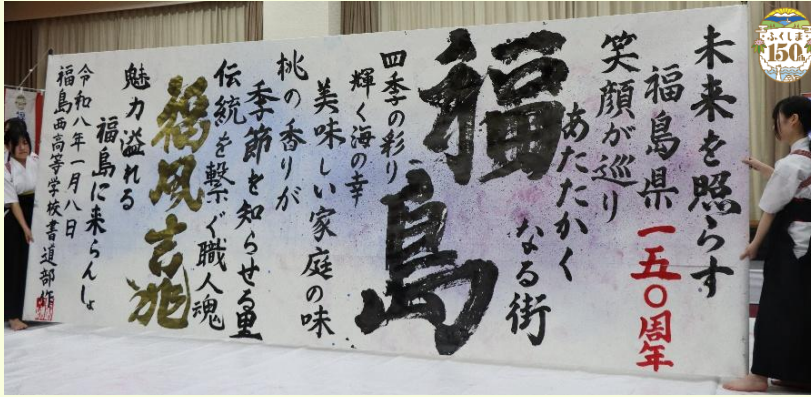 未来を照らす
福島県
一五〇周年
笑顔が巡り
あたたかく
なる街
福島
四季の彩り
輝く海の幸
美味しい家庭の味
桃の香りが
季節を知らせる里
伝統を繋ぐ職人魂
福風吉兆
魅力溢れる
福島に来らんしょ
令和八年一月八日
福島西高等学校書道部作
ふくしま
150年